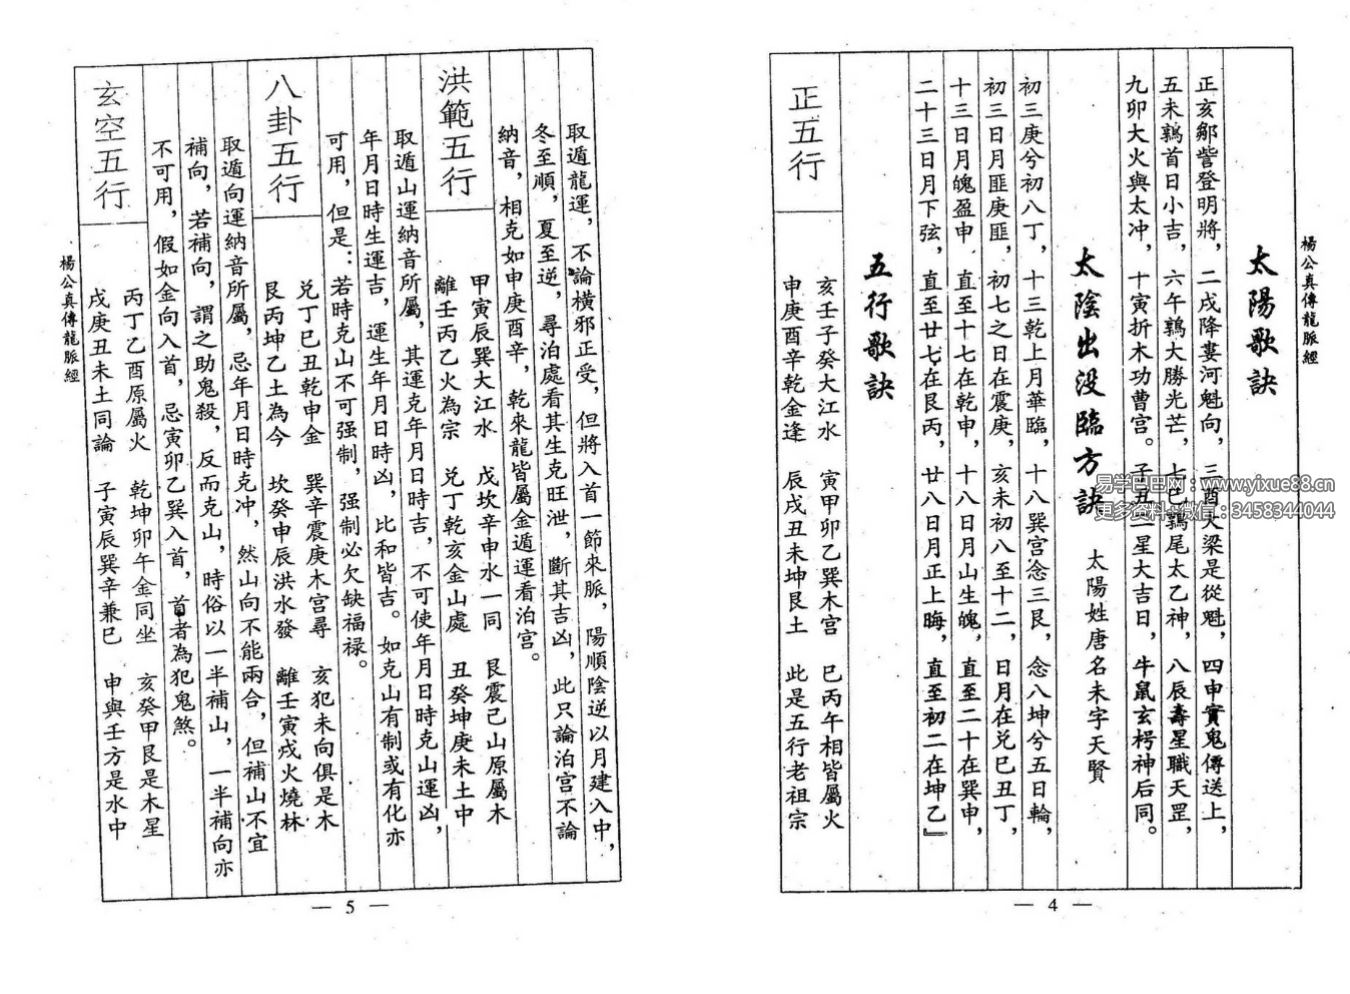 楊公真傳龍脈經
太陽歌訣
正亥鄒訾登明將，二戌降婁河魁向，三酉大梁是從魁，四申實鬼傳送上，
五未鶉首日小吉，六午鶉大勝光芒，七巳鶉尾太乙神，八辰壽星職天罡，
九卯大火與太冲，十寅折木功曹宮。子丑二星大吉日，牛鼠玄枵神后同。
太陰出没臨方訣 太陽姓唐名未字天賢
初三庚兮初八丁，十三乾上月華臨，十八巽宮念三艮，念八坤兮五日輪，
初三日月匪庚匪，初七之日在震庚，亥未初八至十二，日月在兑巳丑丁，
十三日月魄盈申，直至十七在乾申，十八日月山生魄，直至二十在巽申，
二十三日月下弦，直至廿七在艮丙，廿八日月正上晦，直至初二在坤乙』
五行歌訣
正五行
亥壬子癸大江水 寅甲卯乙巽木宮 巳丙午相皆屬火
申庚酉辛乾金逢 辰戌丑未坤艮土 此是五行老祖宗
— 4 —
取遁龍運，不論橫邪正受，但將入首一節來脈，陽順陰逆以月建入中，
冬至順，夏至逆，尋泊處看其生克旺泄，斷其吉凶，此只論泊宮不論
納音，相克如申庚酉辛，乾來龍皆屬金遁運看泊宮。
洪範五行
甲寅辰巽大江水 戊坎辛申水一同 艮震己山原屬木
離壬丙乙火為宗 兑丁乾亥金山處 丑癸坤庚未土中
取遁山運納音所屬，其運克年月日時吉，不可使年月日時克山運凶，
年月日時生運吉，運生年月日時凶，比和皆吉。如克山有制或有化亦
可用，但是：若時克山不可强制，强制必欠缺福禄。
八卦五行
兑丁巳丑乾申金 巽辛震庚木宮尋 亥犯未向俱是木
艮丙坤乙土為今 坎癸申辰洪水發 離壬寅戌火燒林
取遁向運納音所屬，忌年月日時克冲，然山向不能兩合，但補山不宜
補向，若補向，謂之助鬼殺，反而克山，時俗以一半補山，一半補向亦
不可用，假如金向入首，忌寅卯乙巽入首，首者為犯鬼煞。
玄空五行
丙丁乙酉原屬火 乾坤卯午金同坐 亥癸甲艮是木星
戌庚丑未土同論 子寅辰巽辛兼巳 申與壬方是水中
楊公真傳龍脈經
— 5 —
易学巴巴网：www.yixue88.cn
更多资料+微信：3458344044